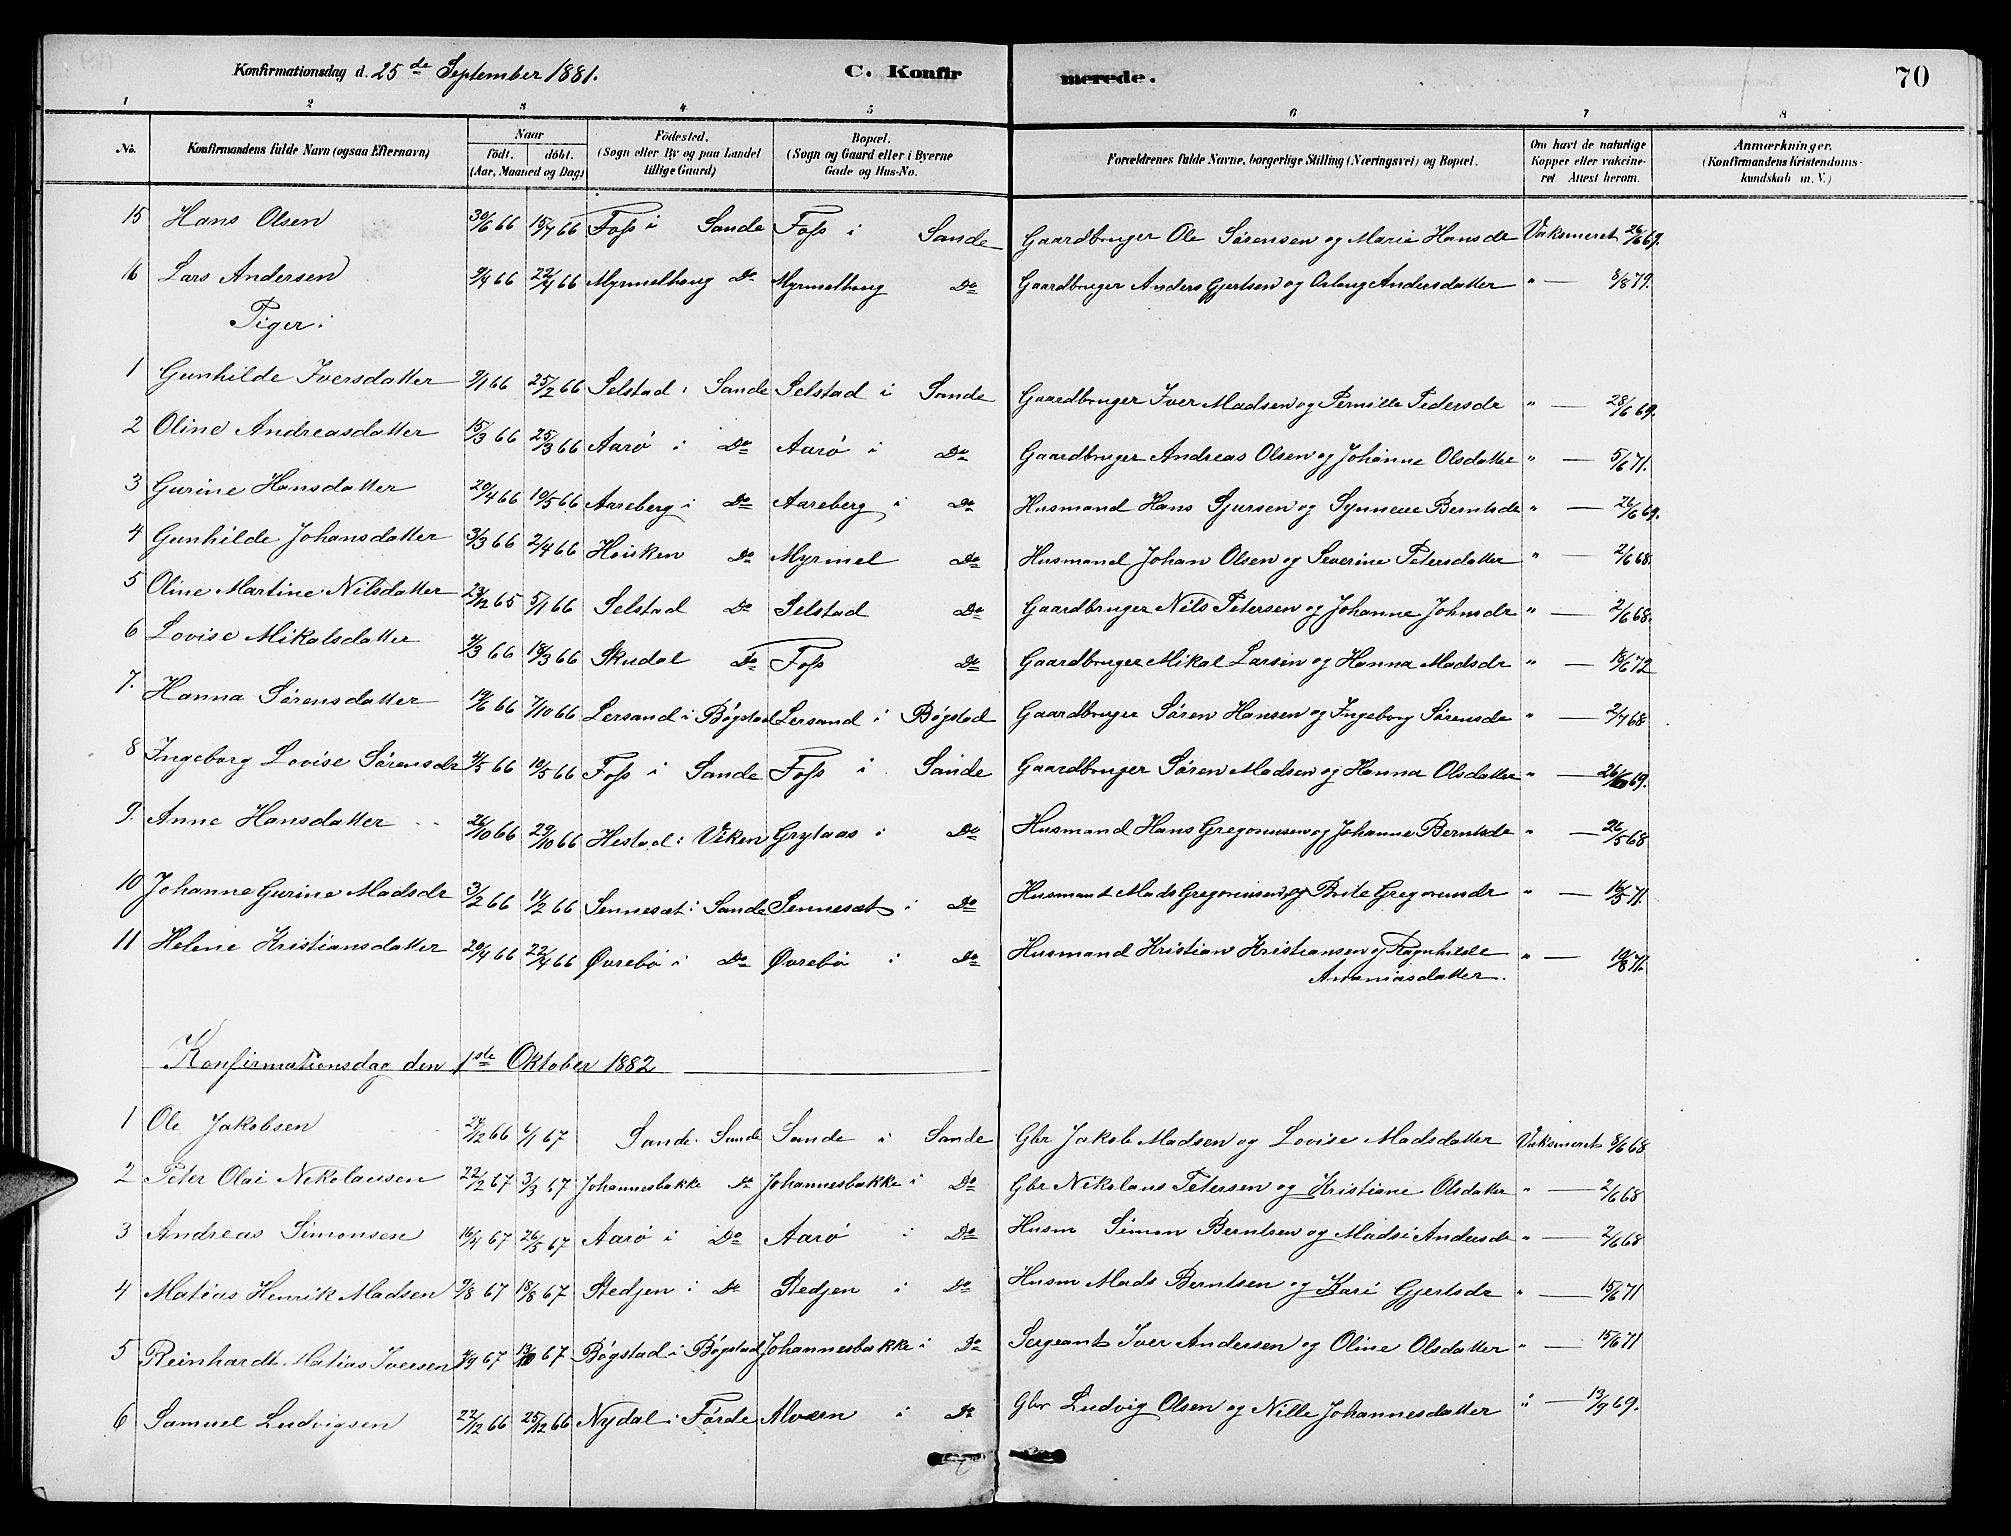 Konfirmationsdag d. 25de September 1881. C. Konfirmerede. 70
1 2 3 4 5 6 7 8
No. Konfirmandens fulde Navn (ogsaa Efternavn) Naar födt. döbt. (Aar, Maaned og Dag) Födested. (Sogn eller By og paa Landet tillige Gaard) Bopæl. (Sogn og Gaard eller i Byerne Gade og Hus-No. Forældrenes fulde Navne, borgerlige Stilling (Næringsvei) og Bopæl. Om havt de naturlige Kopper eller vakcineret Attest herom. Anmærkninger. (Konfirmandens Kristendomskundskab m. V.)
15 Hans Olsen 30/6 66 15/7 66 Foss i Sande Foss i Sande Gaardbruger Ole Sørensen og Marie Hansdr Vaksineret 26/6 69.
16 Lars Andersen 9/4 66 22/4 66 Myrmelhaug Do Myrmelhaug Do Gaardbruger Anders Gjertsen og Oslaug Andersdatter " — 8/8 79.
Piger:
1 Gunhilde Iversdatter 9/1 66 25/2 66 Selstad i Sande Selstad i Sande Gaardbruger Iver Madsen og Pernille Pedersdr " — 28/6 69.
2 Oline Andreasdatter 15/3 66 25/3 66 Aarø i Do Aarø i Do Gaardbruger Andreas Olsen og Johanne Olsdatter " — 5/6 71.
3 Gurine Hansdatter 20/4 66 10/5 66 Aareberg i Do Aareberg i Do Husmand Hans Sjursen og Synneve Berntsdr " — 26/6 69.
4 Gunhilde Johansdatter 3/3 66 2/4 66 Heisken Do Myrmel Do Husmand Johan Olsen og Severine Petersdatter " — 2/6 68.
5 Oline Martine Nilsdatter 23/12 65 5/1 66 Selstad Do Selstad Do Gaardbruger Nils Petersen og Johanne Johnsdr " — 2/6 68.
6 Lovise Mikalsdatter 4/3 66 18/3 66 Skudal Do Foss Do Gaardbruger Mikal Larsen og Hanna Madsdr " — 18/6 72
7. Hanna Sørensdatter 19/6 66 7/10 66 Lersand i Bøgstad Lersand i Bøgstad Gaardbruger Søren Hansen og Ingeborg Sørensdr " — 2/7 68
8 Ingeborg Lovise Sørensdr 4/5 66 10/5 66 Foss i Sande Foss i Sande Gaardbruger Søren Madsen og Hanna Olsdatter " — 26/6 69.
9. Anne Hansdatter 26/10 66 29/10 66 Hestad i Viken Grytaas i Do Husmand Hans Gregoriusen og Johanne Berntsdr " — 26/5 68
10 Johanne Gurine Madsdr 3/2 66 11/2 66 Sennesæt i Sande Sennesæt i Do Husmand Mads Gregoriusen og Brite Gregoriusdr " — 16/5 71.
11 Helene Kristiansdatter 20/4 66 22/4 66 Øvrebø i Do Øvrebø i Do Husmand Kristian Kristiansen og Ragnhilde " — 10/8 71.
Ananiasdatter.
Konfirmationsdag den 1ste Oktober 1882
1 Ole Jakobsen 27/12 66 6/1 67 Sande i Sande Sande i Sande Gbr Jakob Madsen og Lovise Madsdatter Vaksineret 8/6 68
2 Peter Olai Nikolaisen 22/2 67 3/3 67 Johannesbakke Do Johannesbakke i Do Gbr Nikolaus Petersen og Kristiane Olsdatter " — 2/6 68
3 Andreas Simonsen 16/4 67 26/5 67 Aarø i Do Aarø i Do Husm Simon Berntsen og Madsi Andersdr " — 2/6 68
4 Matias Henrik Madsen 9/8 67 18/8 67 Stedjen i Do Stedjen i Do Husm Mads Berntsen og Kari Gjertsdr " — 15/6 71
5 Reinhardt Matias Iversen 4/9 67 13/10 67 Bøgstad i Bøgstad Johannesbakke i Do Sergeant Iver Andersen og Oline Olsdatter " — 15/6 71
6 Samuel Ludvigsen 22/12 66 25/12 66 Nydal i Førde Alværn i Do Gbr Ludvig Olsen og Nille Johannesdatter " — 13/9 69.